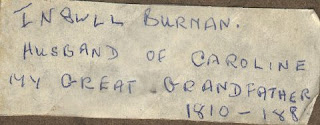 INSULL BURMAN.
HUSBAND OF CAROLINE
MY GREAT GRANDFATHER
1810 - 188